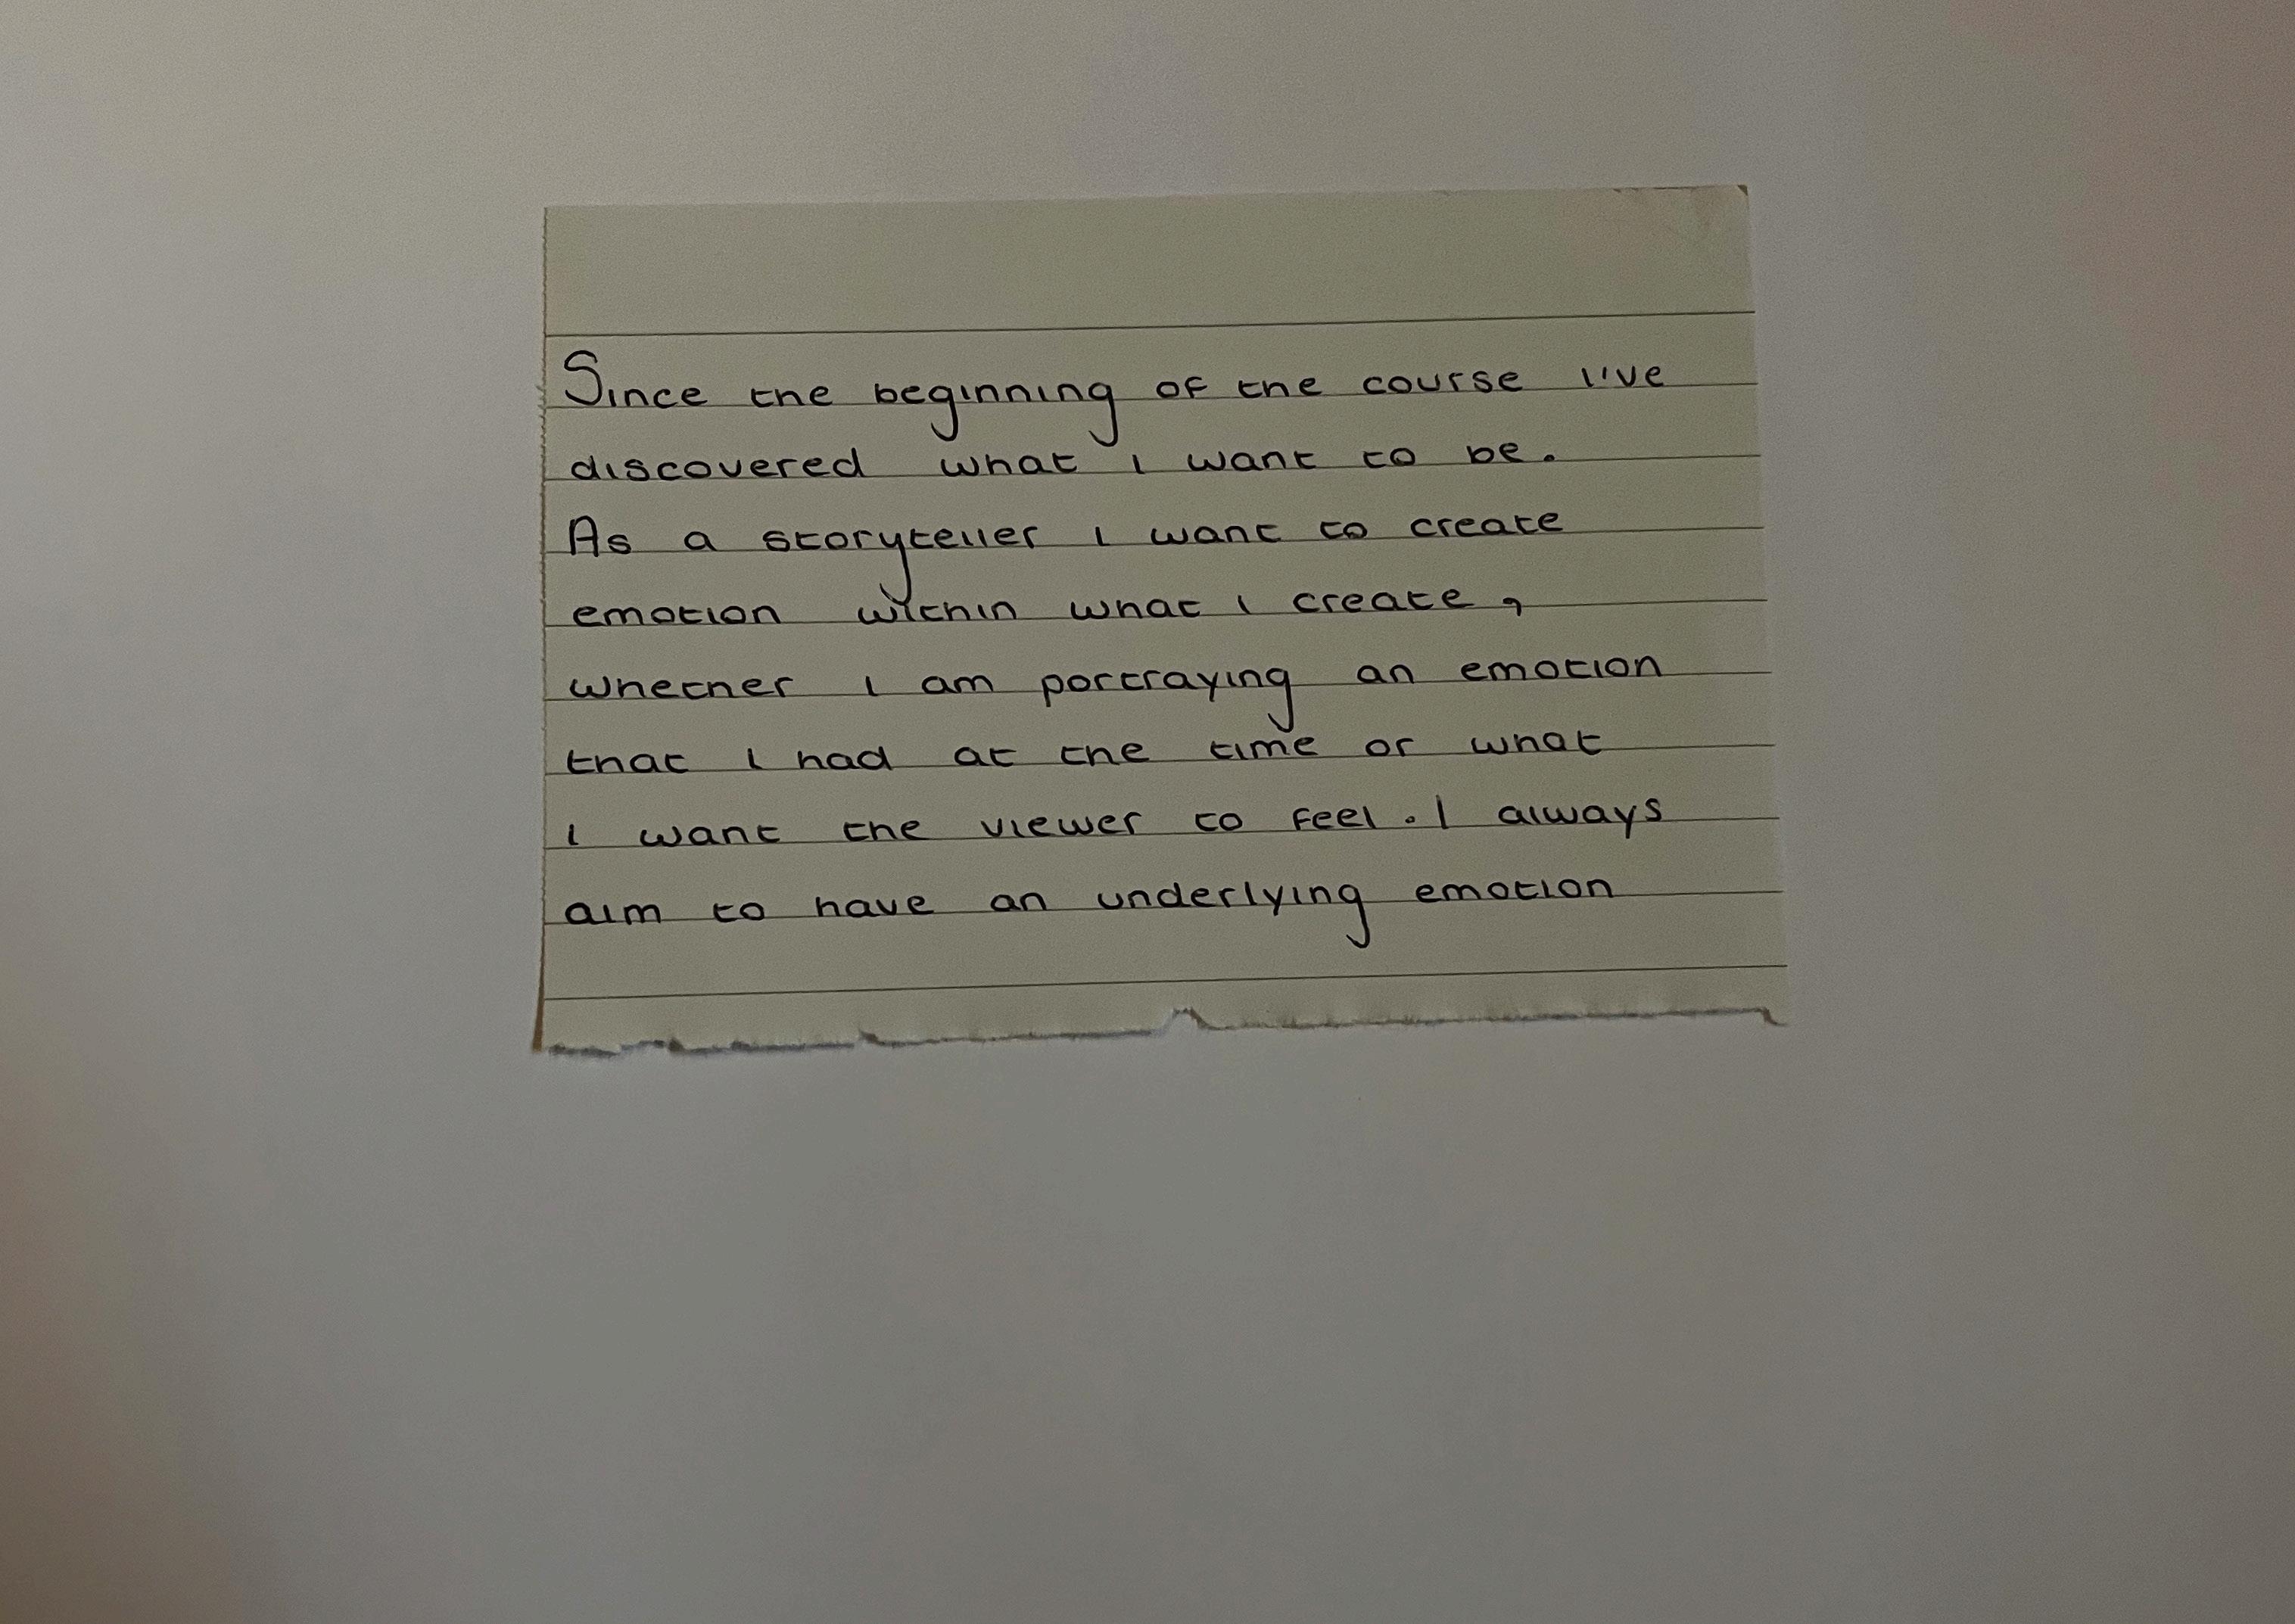 Since the beginning of the course I've
discovered what I want to be.
As a storyteller I want to create
emotion within what I create,
whether I am portraying an emotion
that I had at the time or what
I want the viewer to feel. I always
aim to have an underlying emotion